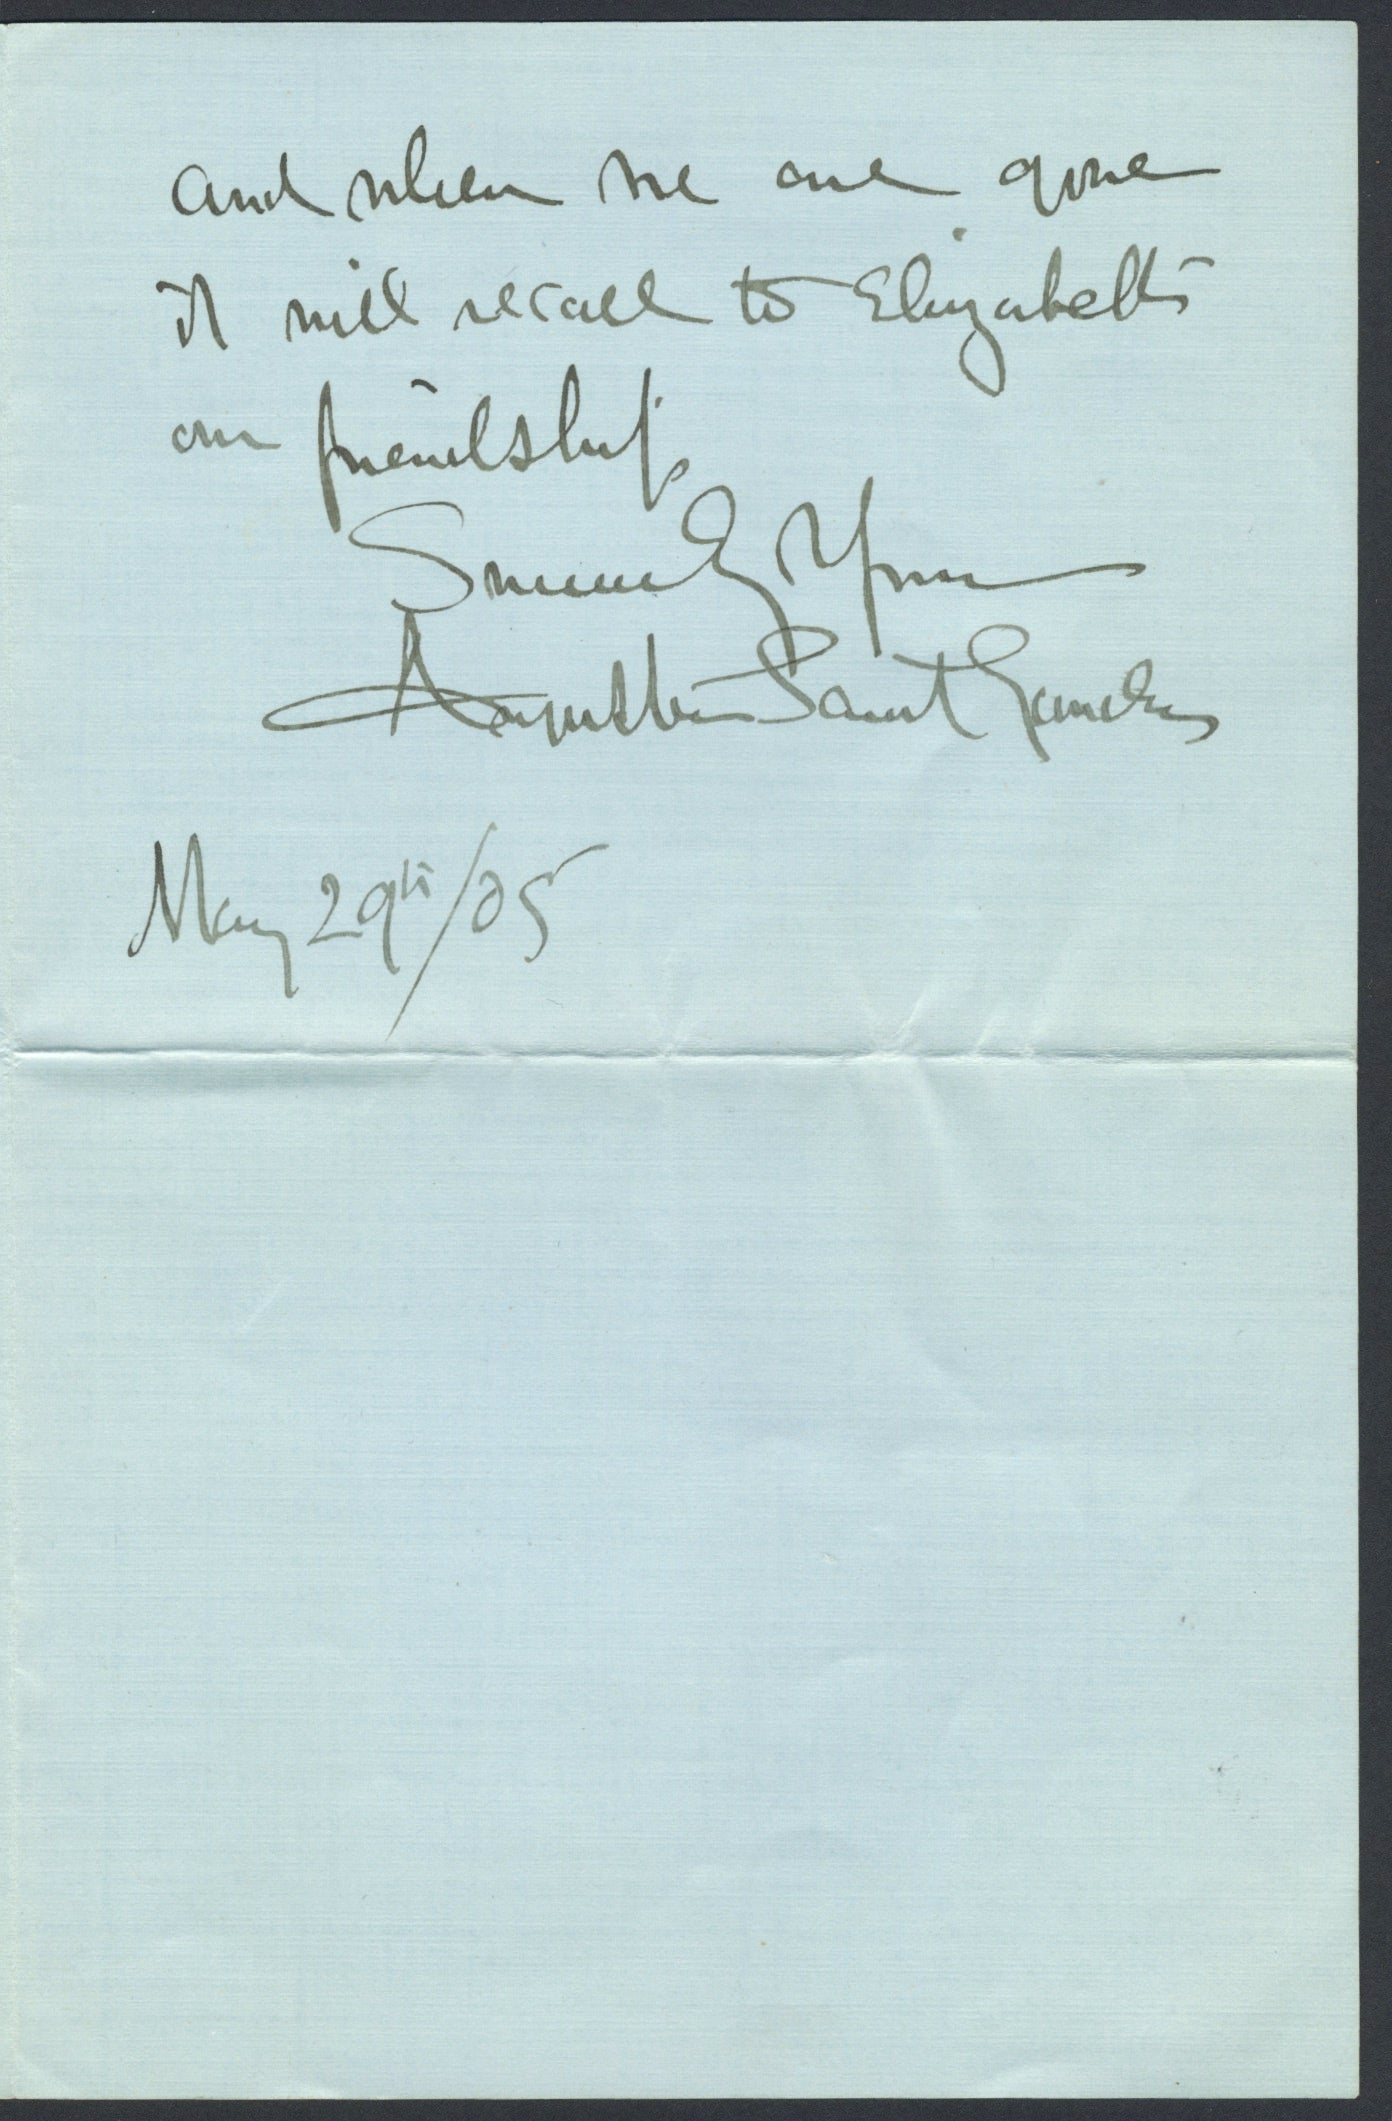 and when we are gone
it will recall to Elizabeth
our friendship.
Sincerely Yours
Augustus Saint Gaudens
May 29th/05